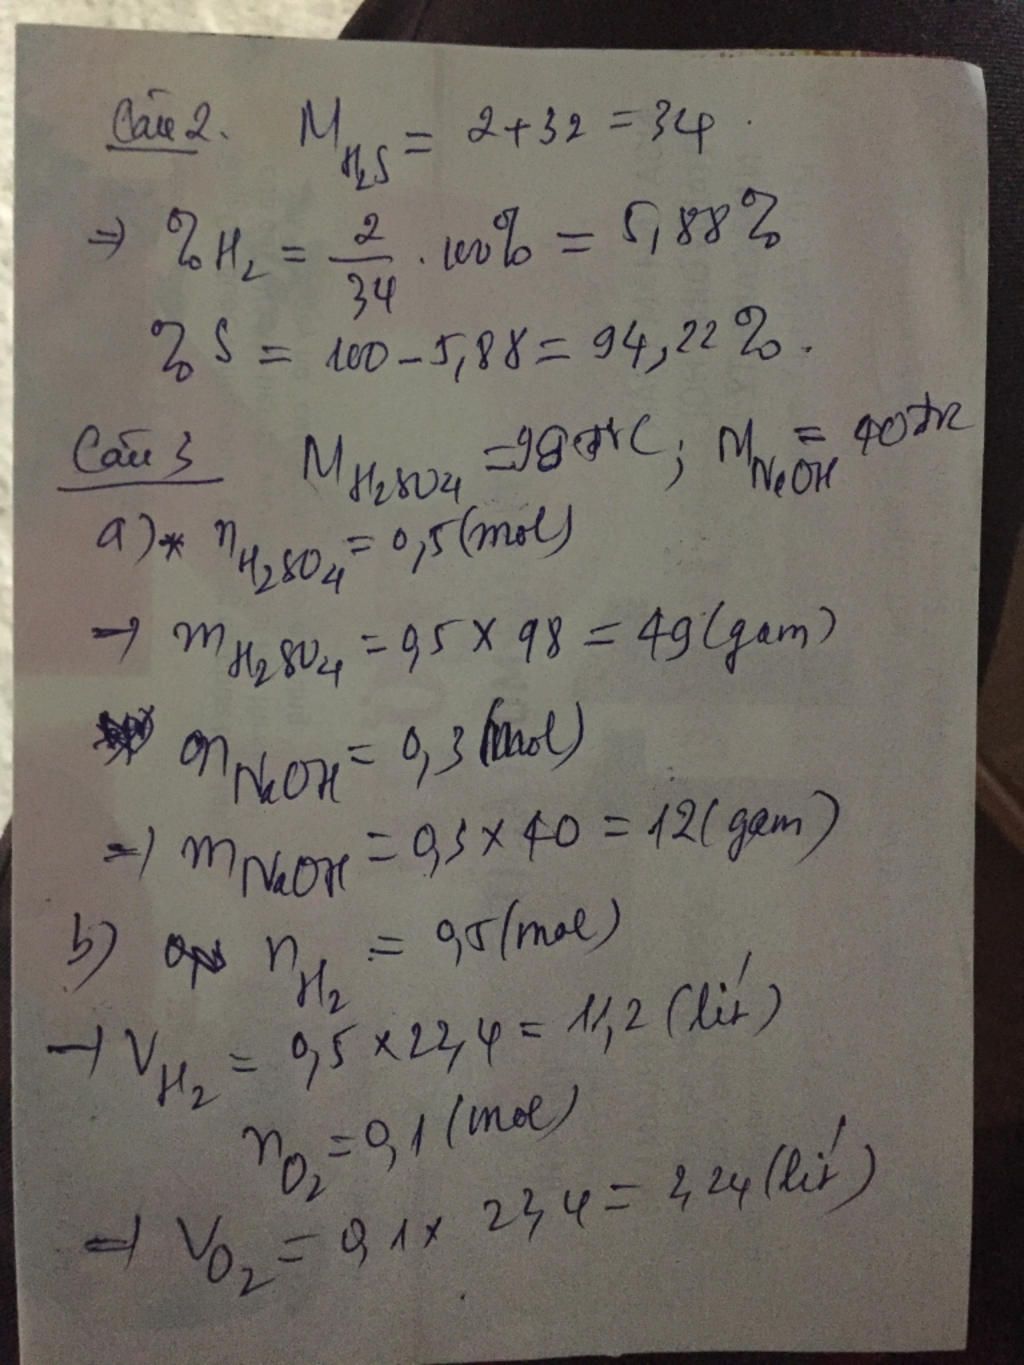 Câu 2. M H₂S = 2+32 = 34
⇒ %H₂ = 2/34 . 100% = 5,88%
%S = 100 - 5,88 = 94,22%.
Câu 3 M H₂SO₄ = 98 đvC ; M NaOH = 40 đvC
a) * n H₂SO₄ = 0,5 (mol)
→ m H₂SO₄ = 0,5 × 98 = 49 (gam)
n NaOH = 0,3 (mol)
⇒ m NaOH = 0,3 × 40 = 12 (gam)
b) n H₂ = 0,5 (mol)
→ V H₂ = 0,5 × 22,4 = 11,2 (lít)
n O₂ = 0,1 (mol)
⇒ V O₂ = 0,1 × 22,4 = 2,24 (lít)